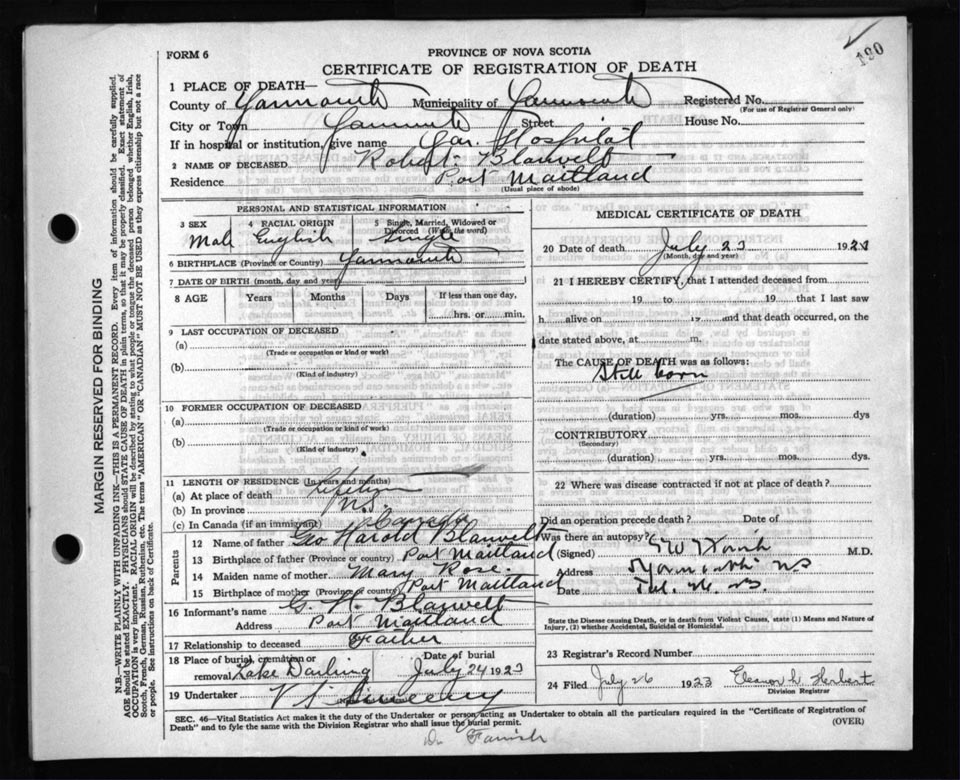 190
FORM 6
PROVINCE OF NOVA SCOTIA
CERTIFICATE OF REGISTRATION OF DEATH
1 PLACE OF DEATH—
County of Yarmouth Municipality of Yarmouth Registered No.
(For use of Registrar General only)
City or Town Yarmouth Street House No.
If in hospital or institution, give name Yar. Hospital
2 NAME OF DECEASED Robert Blauvelt
Residence Port Maitland
(Usual place of abode)
PERSONAL AND STATISTICAL INFORMATION
3 SEX 4 RACIAL ORIGIN 5 Single, Married, Widowed or Divorced (Write the word)
Male English Single
6 BIRTHPLACE (Province or Country) Yarmouth
7 DATE OF BIRTH (month, day and year)
8 AGE Years Months Days If less than one day,
hrs. or min.
9 LAST OCCUPATION OF DECEASED
(a)
(Trade or occupation or kind or work)
(b)
(Kind of industry)
10 FORMER OCCUPATION OF DECEASED
(a)
(Trade or occupation or kind of work)
(b)
(Kind of industry)
11 LENGTH OF RESIDENCE (In years and months)
(a) At place of death
(b) In province
(c) In Canada (if an immigrant)
Parents
12 Name of father Geo Harold Blauvelt
13 Birthplace of father (Province or country) Port Maitland
14 Maiden name of mother Mary Rose
15 Birthplace of mother (Province or country) Port Maitland
16 Informant's name G. H. Blauvelt
Address Port Maitland
17 Relationship to deceased Father
18 Place of burial, cremation or removal Lake Darling Date of burial July 24 1923
19 Undertaker V S Sweeny
MEDICAL CERTIFICATE OF DEATH
20 Date of death July 23 1923
(Month, day and year)
21 I HEREBY CERTIFY, that I attended deceased from
19 to 19 that I last saw
h alive on 19 and that death occurred, on the
date stated above, at m.
The CAUSE OF DEATH was as follows:
Still born
(duration) yrs. mos. dys
CONTRIBUTORY
(Secondary)
(duration) yrs. mos. dys.
22 Where was disease contracted if not at place of death?
Did an operation precede death? Date of
Was there an autopsy?
(Signed) M.D.
Address Yarmouth NS
Date
State the Disease Causing Death, or in death from Violent Causes, state (1) Means and Nature of Injury, (2) whether Accidental, Suicidal or Homicidal.
23 Registrar's Record Number
24 Filed July 26 1923 Eleanor h Herbert
Division Registrar
SEC. 46—Vital Statistics Act makes it the duty of the Undertaker or person acting as Undertaker to obtain all the particulars required in the "Certificate of Registration of
Death" and to fyle the same with the Division Registrar who shall issue the burial permit. (OVER)
MARGIN RESERVED FOR BINDING
N.B.—WRITE PLAINLY WITH UNFADING INK—THIS IS A PERMANENT RECORD. Every item of information should be carefully supplied.
AGE should be stated EXACTLY. PHYSICIANS should STATE CAUSE OF DEATH in plain terms, so that it may be properly classified. Exact statement of
OCCUPATION is very important. RACIAL ORIGIN will be described by stating to what people or tongue the deceased person belonged whether English, Irish,
Scotch, French, German, Russian, Ruthenian, etc. The terms "AMERICAN" OR "CANADIAN" MUST NOT BE USED as they express citizenship but not a race
or people. See instructions on back of Certificate.